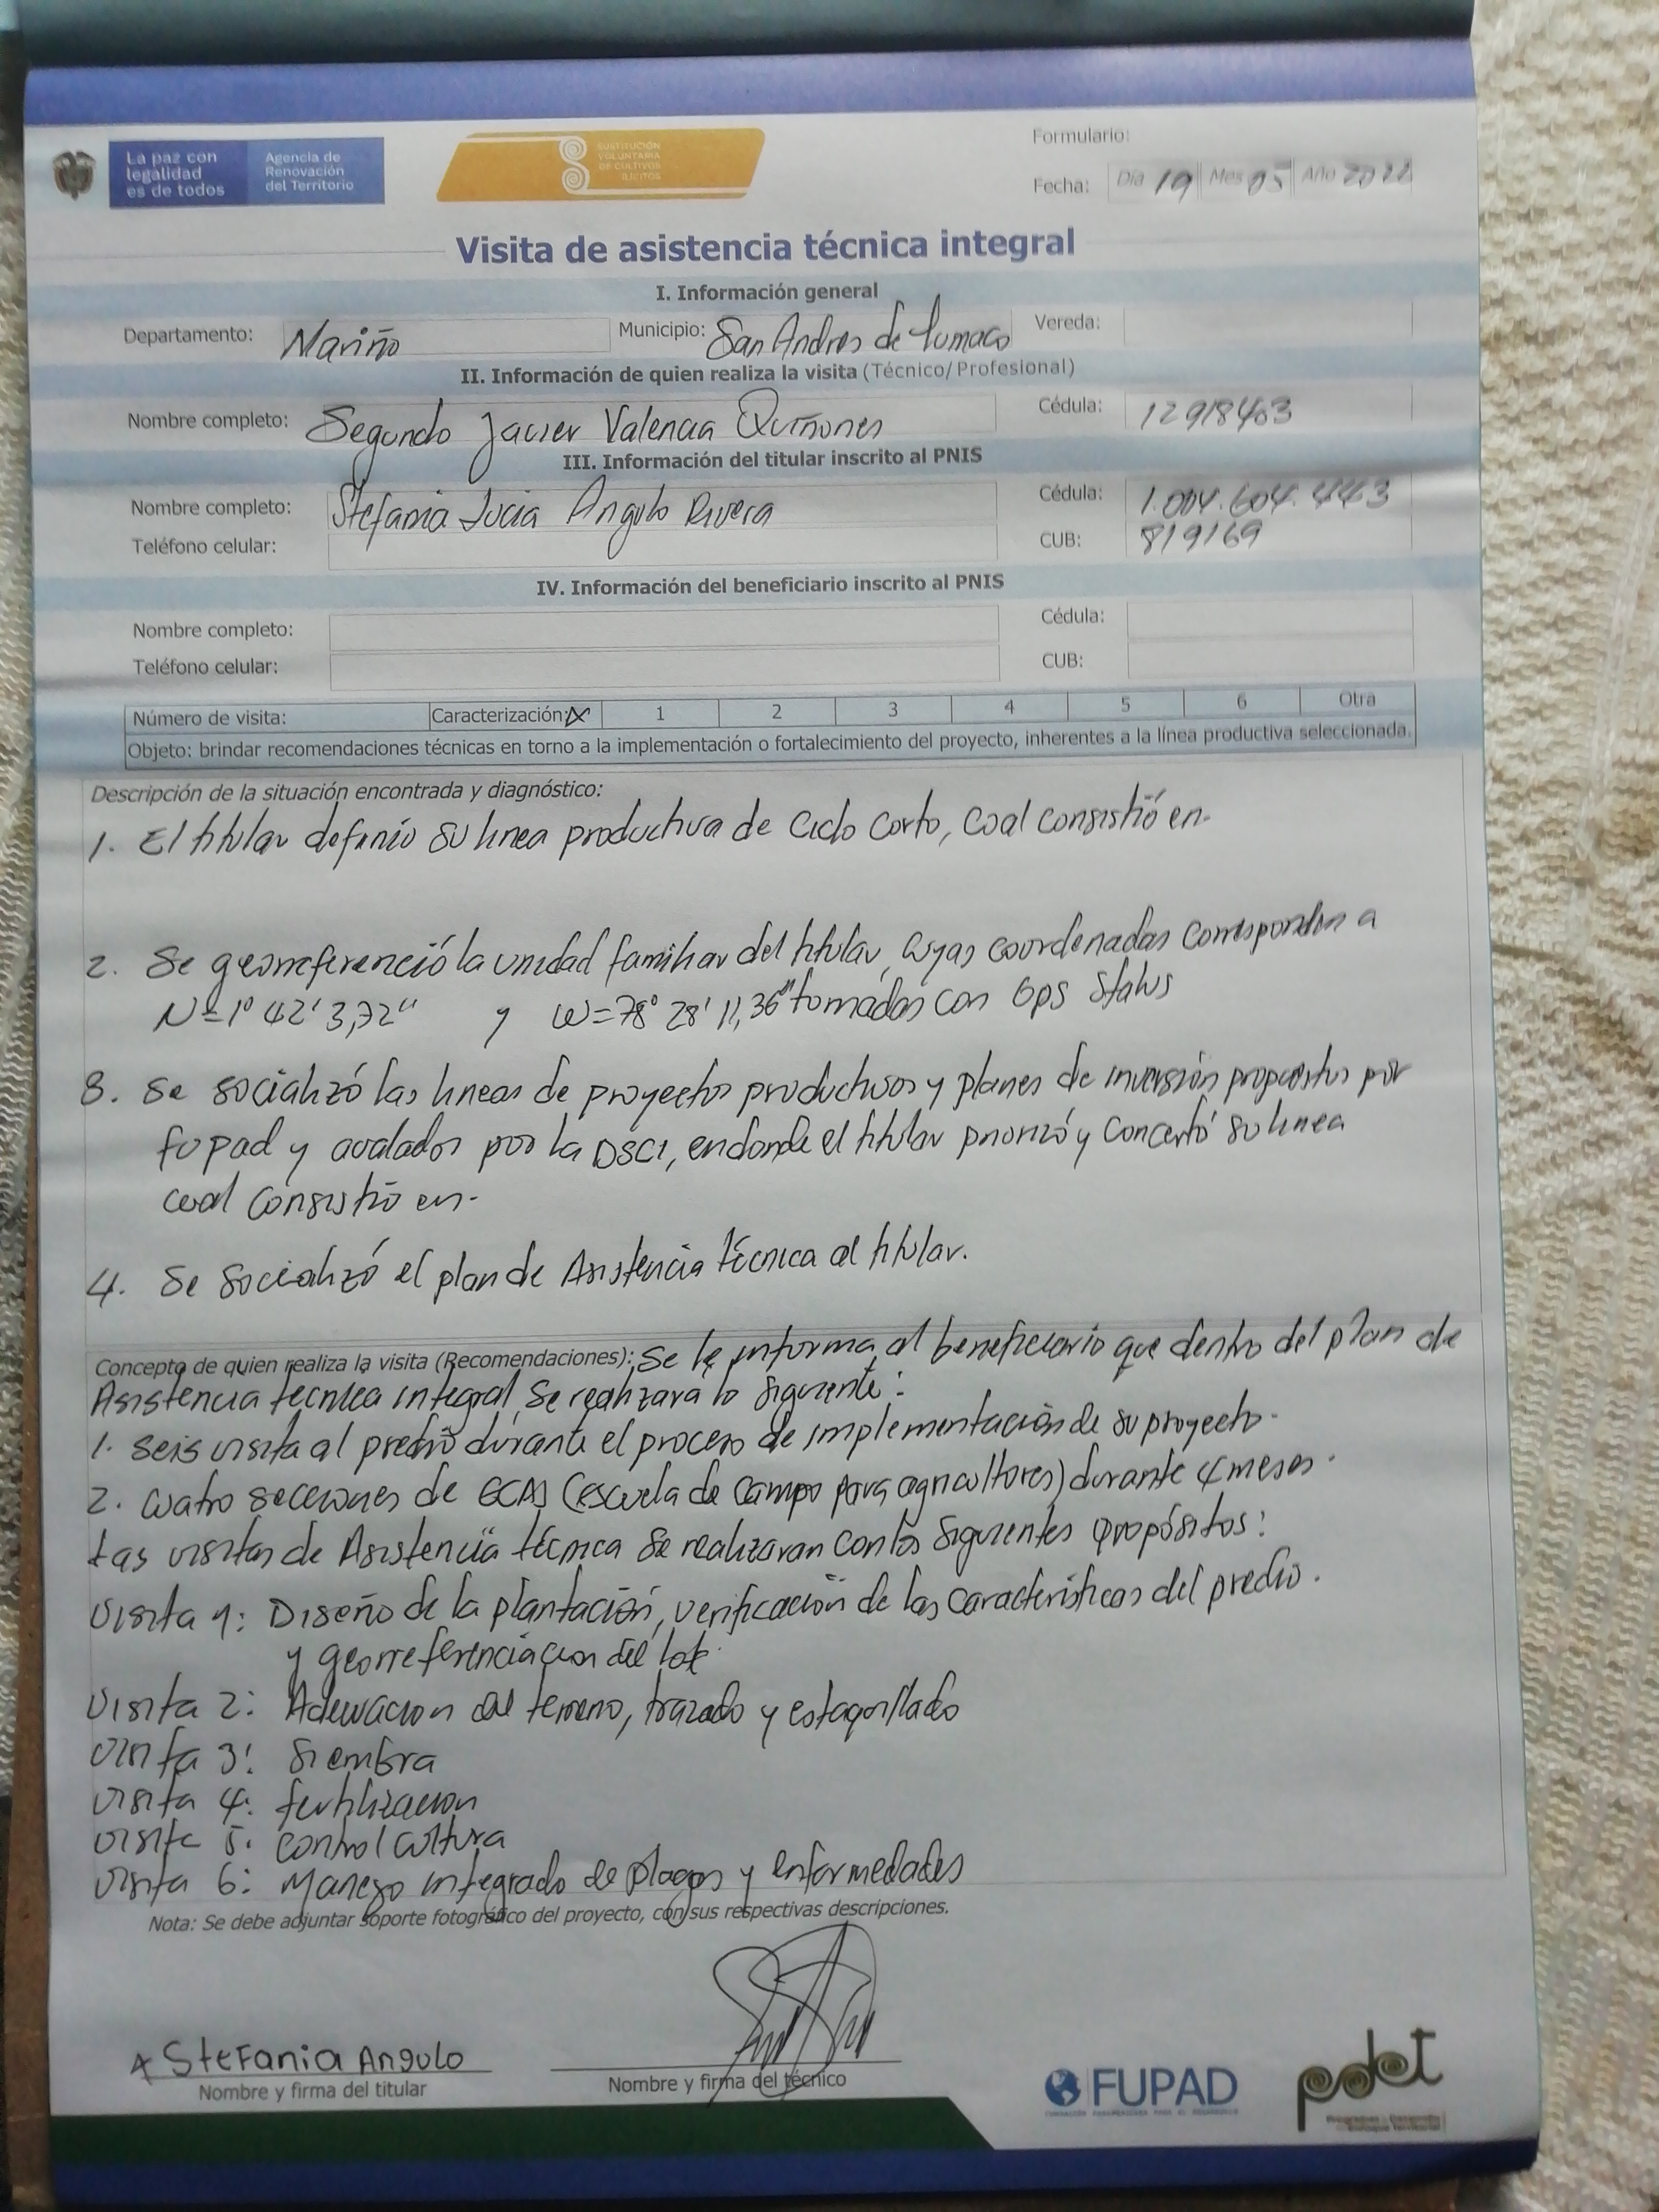 La paz con
legalidad
es de todos
Agencia de
Renovación
del Territorio
SUSTITUCIÓN
VOLUNTARIA
DE CULTIVOS
ILÍCITOS
Formulario:
Fecha: Día 19 Mes 05 Año 2022
Visita de asistencia técnica integral
I. Información general
Departamento: Nariño Municipio: San Andres de Tumaco Vereda:
II. Información de quien realiza la visita (Técnico/Profesional)
Nombre completo: Segundo Javier Valencia Quiñones Cédula: 12918403
III. Información del titular inscrito al PNIS
Nombre completo: Stefania Lucia Angulo Rivera Cédula: 1.004.604.443
Teléfono celular: CUB: 819169
IV. Información del beneficiario inscrito al PNIS
Nombre completo: Cédula:
Teléfono celular: CUB:
Número de visita: Caracterización: X 1 2 3 4 5 6 Otra
Objeto: brindar recomendaciones técnicas en torno a la implementación o fortalecimiento del proyecto, inherentes a la línea productiva seleccionada.
Descripción de la situación encontrada y diagnóstico:
1. El titular definio su linea productiva de Ciclo Corto, Coal consistió en.
2. Se georreferenció la unidad familiar del titular, cuyas coordenadas corresponden a
N=1° 42' 3,72" y W=78° 28' 11,36" tomadas con Gps Status
3. Se socializó las lineas de proyectos productivos y planes de inversión propuestos por
fupad y avalados por la DSCI, endonde el titular priorizó y concertó su linea
coal Consistió en-
4. Se socializó el plan de Asistencia técnica al titular.
Concepto de quien realiza la visita (Recomendaciones): Se le informa al beneficiario que dentro del plan de
Asistencia técnica integral se realizara lo siguiente:
1. Seis visita al predio durante el proceso de implementación de su proyecto.
2. Cuatro secciones de ECAS (escuela de campo para agricultores) durante 4 meses.
Las visitas de Asistencia técnica se realizaran con los siguientes propósitos:
Visita 1: Diseño de la plantación, verificación de las características del predio.
y georreferenciacion del lote.
Visita 2: Adecuacion del terreno, trazado y estaquillado
Visita 3: Siembra
Visita 4: fertilizacion
Visita 5: Control Cultura
Visita 6: Manejo integrado de plagas y enfermedades
Nota: Se debe adjuntar soporte fotográfico del proyecto, con sus respectivas descripciones.
x Stefania Angulo
Nombre y firma del titular
Nombre y firma del técnico
FUPAD
pdet